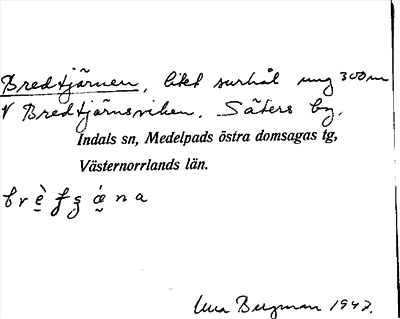 Bredtjärnen, litet surhål ung 300 m
V Bredtjärnsviken. Säters by.
Indals sn, Medelpads östra domsagas tg,
Västernorrlands län.
Bergman 1947.